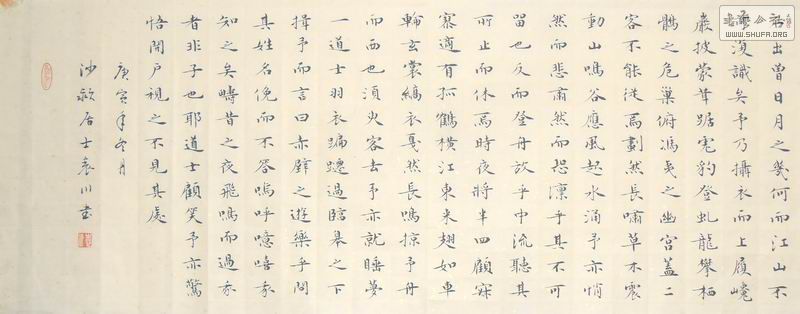 出曾日月之幾何而江山不
復識矣予乃攝衣而上履巉
巖披蒙茸踞虎豹登虬龍攀栖
鶻之危巢俯馮夷之幽宮蓋二
客不能從焉劃然長嘯草木震
動山鳴谷應風起水涌予亦悄
然而悲肅然而恐凜乎其不可
留也反而登舟放乎中流聽其
所止而休焉時夜將半四顧寂
寥適有孤鶴橫江東來翅如車
輪玄裳縞衣戛然長鳴掠予舟
而西也須臾客去予亦就睡夢
一道士羽衣蹁躚過臨皋之下
揖予而言曰赤壁之遊樂乎問
其姓名俛而不答嗚呼噫嘻我
知之矣疇昔之夜飛鳴而過我
者非子也耶道士顧笑予亦驚
悟開戶視之不見其處
庚寅年冬月
沙居士袁川書
WWW.SHUFA.ORG